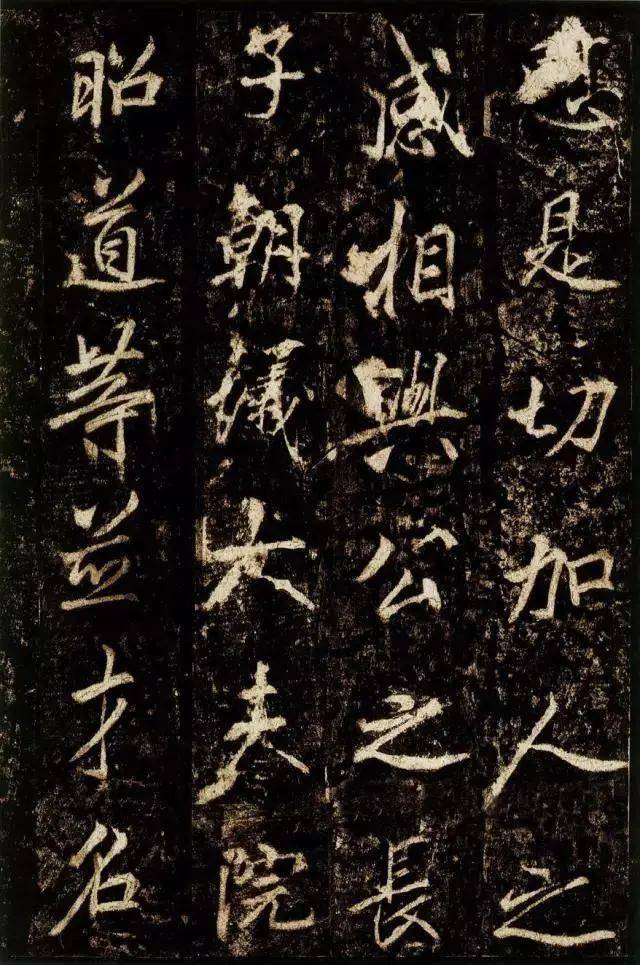 是切加人之
感相與公之長
子朝議大夫院
昭道等並才名